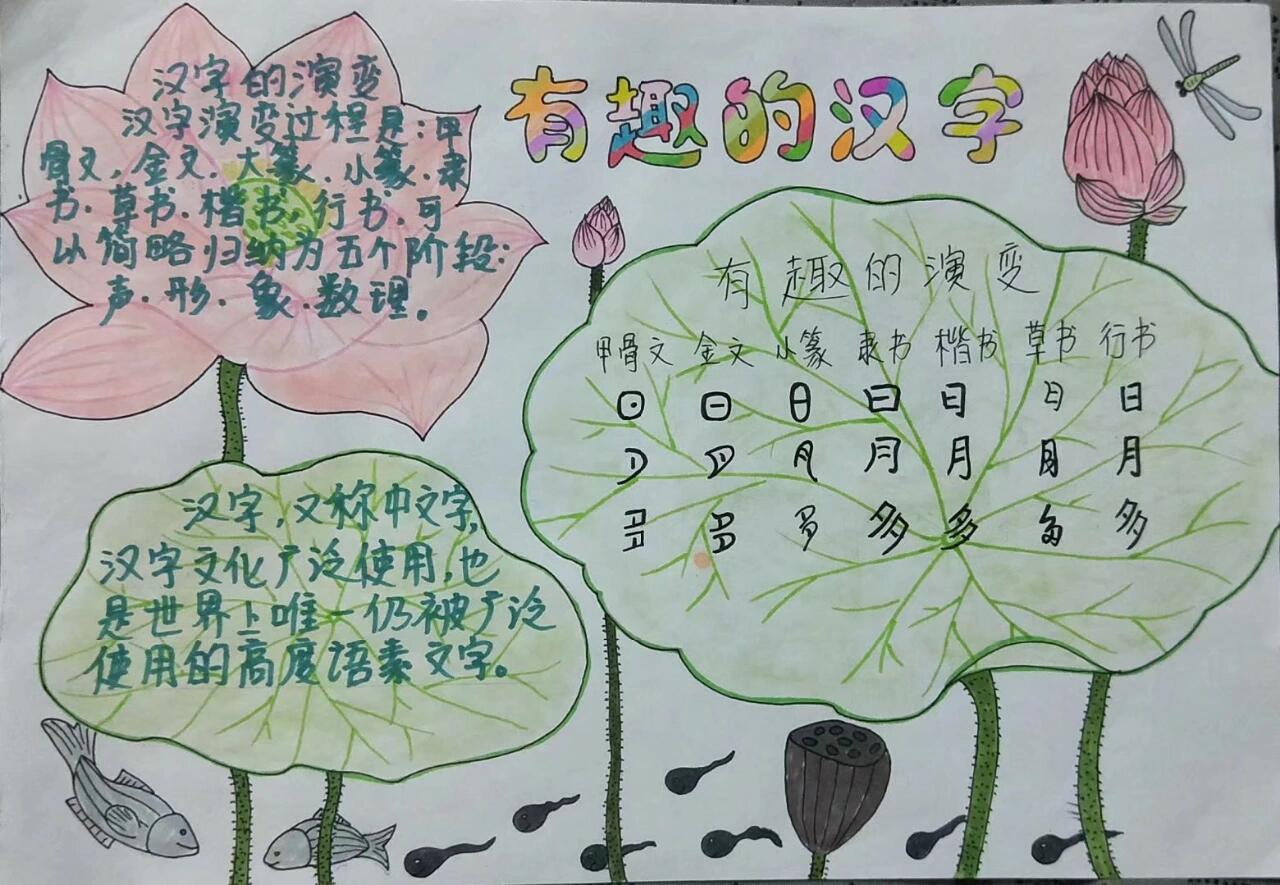 有趣的汉字
汉字的演变
汉字演变过程是:甲
骨文,金文.大篆.小篆.隶
书.草书.楷书.行书.可
以简略归纳为五个阶段:
声.形.象.数.理。
有趣的演变
甲骨文 金文 小篆 隶书 楷书 草书 行书
日 日 日 日 日 日 日
月 月 月 月 月 月 月
多 多 多 多 多 多 多
汉字,又称中文字,
汉字文化广泛使用,也
是世界上唯一仍被广泛
使用的高度语素文字。